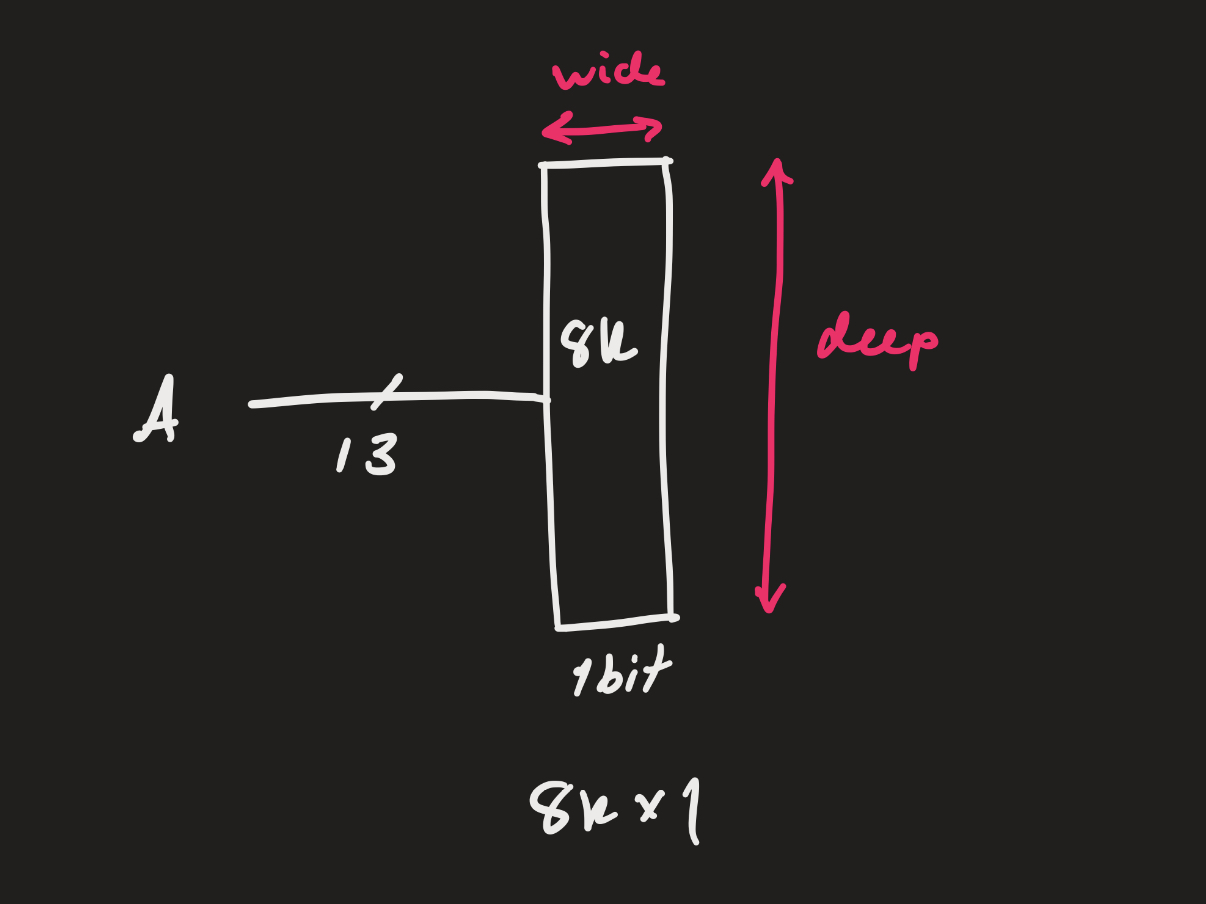 wide
8k
deep
A
13
1bit
8k x 1